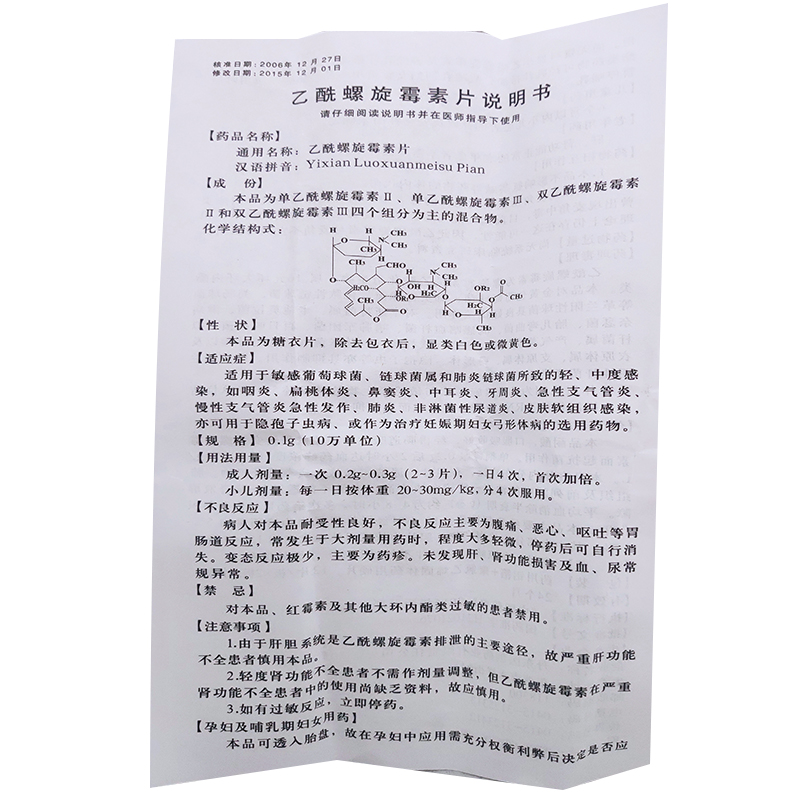 核准日期:2006年 12 月 27日
修改日期:2015年 12 月 01日
乙酰螺旋霉素片说明书
请仔细阅读说明书并在医师指导下使用
【药品名称】
通用名称：乙酰螺旋霉素片
汉语拼音：Yixian Luoxuanmeisu Pian
【成 份】
本品为单乙酰螺旋霉素Ⅱ、单乙酰螺旋霉素Ⅲ、双乙酰螺旋霉素
Ⅱ和双乙酰螺旋霉素Ⅲ四个组分为主的混合物。
化学结构式：
【性 状】
本品为糖衣片，除去包衣后，显类白色或微黄色。
【适应症】
适用于敏感葡萄球菌、链球菌属和肺炎链球菌所致的轻、中度感
染，如咽炎、扁桃体炎、鼻窦炎、中耳炎、牙周炎、急性支气管炎、
慢性支气管炎急性发作、肺炎、非淋菌性尿道炎、皮肤软组织感染，
亦可用于隐孢子虫病、或作为治疗妊娠期妇女弓形体病的选用药物。
【规 格】 0.1g (10万单位)
【用法用量】
成人剂量：一次 0.2g~0.3g (2~3 片)，一日4 次，首次加倍。
小儿剂量：每一日按体重 20~30mg/kg,分4 次服用。
【不良反应】
病人对本品耐受性良好，不良反应主要为腹痛、恶心、呕吐等胃
肠道反应，常发生于大剂量用药时，程度大多轻微，停药后可自行消
失。变态反应极少，主要为药疹。未发现肝、肾功能损害及血、尿常
规异常。
【禁 忌】
对本品、红霉素及其他大环内酯类过敏的患者禁用。
【注意事项】
1.由于肝胆系统是乙酰螺旋霉素排泄的主要途径，故严重肝功能
不全患者慎用本品。
2.轻度肾功能不全患者不需作剂量调整，但乙酰螺旋霉素在严重
肾功能不全患者中的使用尚缺乏资料，故应慎用。
3.如有过敏反应，立即停药。
【孕妇及哺乳期妇女用药】
本品可透入胎盘，故在孕妇中应用需充分权衡利弊后决定是否应